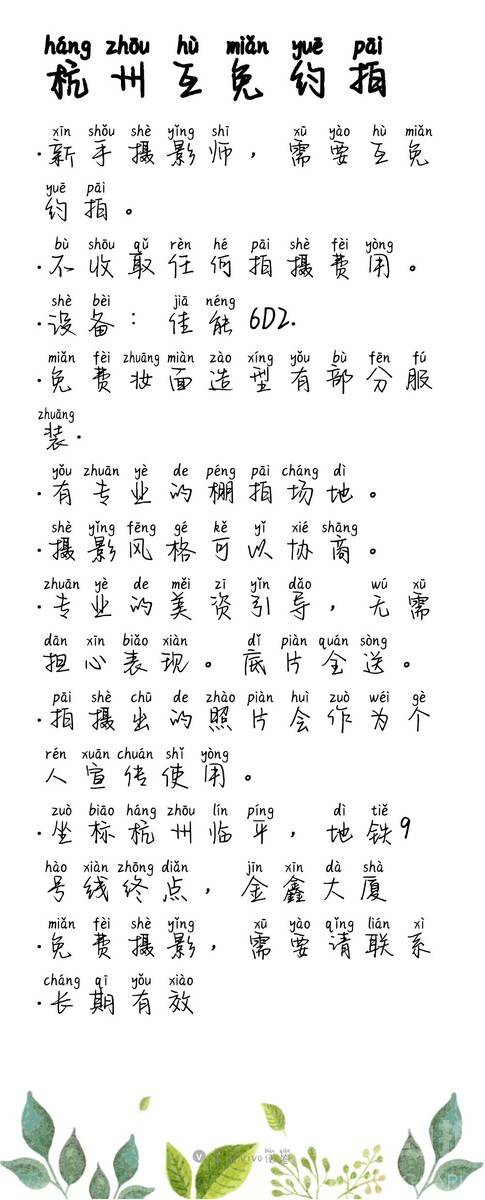 háng zhōu hù miǎn yuē pāi
杭州互免约拍
xīn shǒu shè yǐng shī xū yào hù miǎn
·新手摄影师，需要互免
yuē pāi
约拍。
bù shōu qǔ rèn hé pāi shè fèi yòng
·不收取任何拍摄费用。
shè bèi jiā néng
·设备：佳能6D2.
miǎn fèi zhuāng miàn zào xíng yǒu bù fēn fú
·免费妆面造型有部分服
zhuāng
装.
yǒu zhuān yè de péng pāi cháng dì
·有专业的棚拍场地。
shè yǐng fēng gé kě yǐ xié shāng
·摄影风格可以协商。
zhuān yè de měi zī yǐn dǎo wú xū
·专业的美资引导，无需
dān xīn biǎo xiàn dǐ piàn quán sòng
担心表现。底片全送。
pāi shè chū de zhào piàn huì zuò wéi gè
·拍摄出的照片会作为个
rén xuān chuán shǐ yòng
人宣传使用。
zuò biāo háng zhōu lín píng dì tiě
·坐标杭州临平，地铁9
hào xiàn zhōng diǎn jīn xīn dà shà
号线终点，金鑫大厦
miǎn fèi shè yǐng xū yào qǐng lián xì
·免费摄影，需要请联系
cháng qī yǒu xiào
·长期有效
vivo